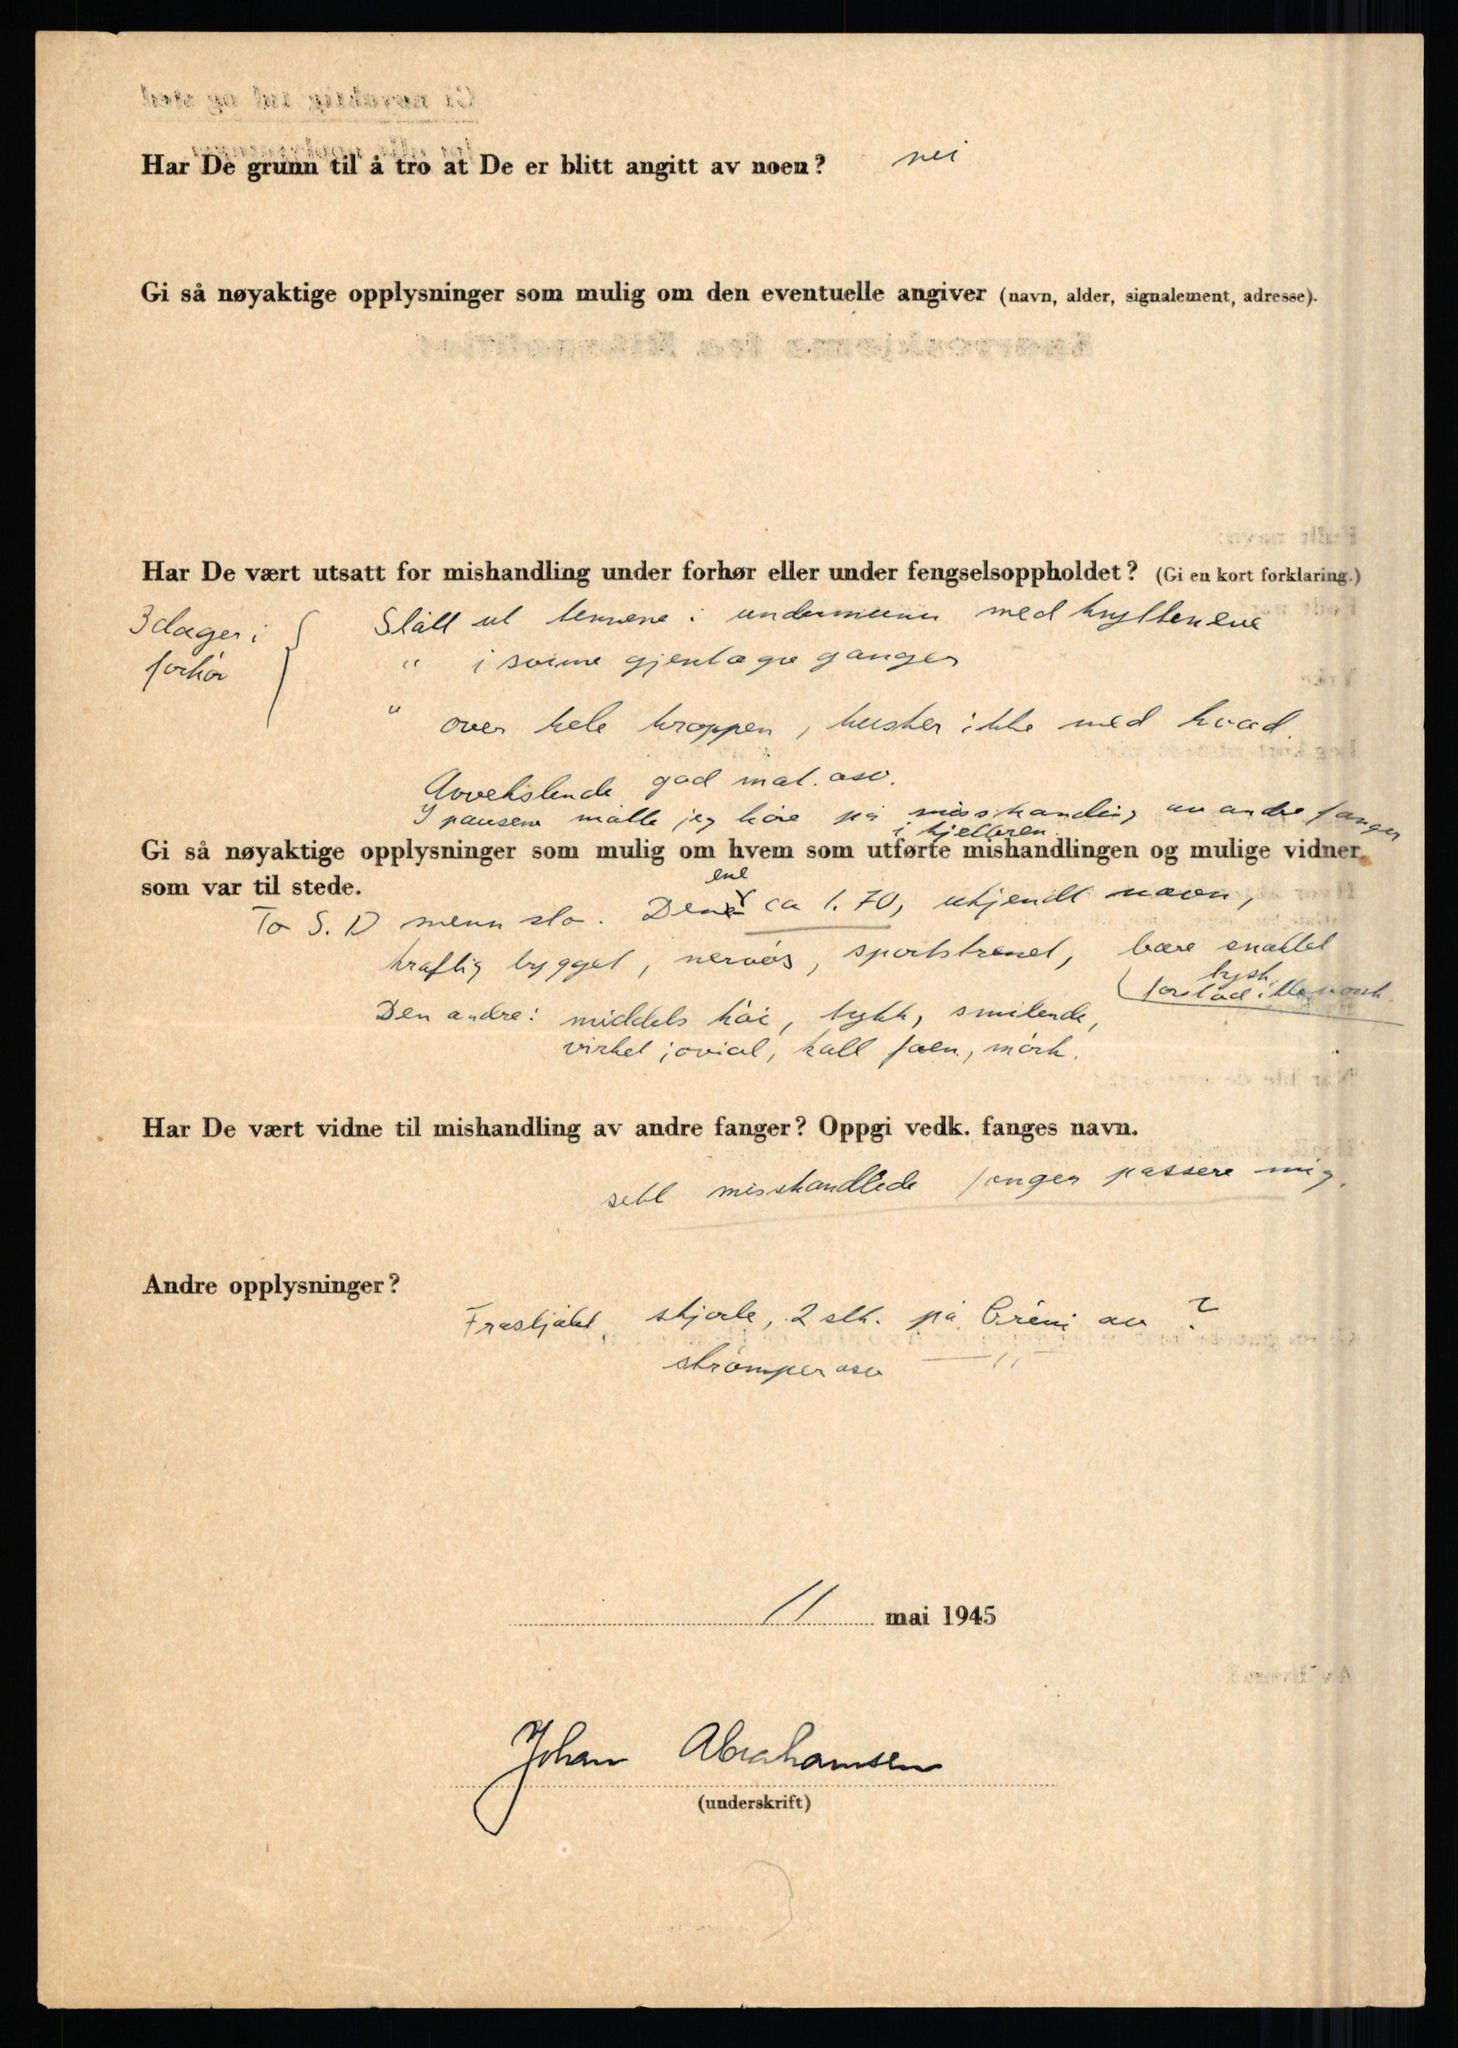 Har De grunn til å tro at De er blitt angitt av noen? nei
Gi så nøyaktige opplysninger som mulig om den eventuelle angiver (navn, alder, signalement, adresse).
Har De vært utsatt for mishandling under forhør eller under fengselsoppholdet? (Gi en kort forklaring.)
3 dager i forhör { Slått ut tennene i undermunn med knyttenene
" i svime gjentagne ganger
" over hele kroppen, husker ikke med hvad.
Avvekslende god mat. osv.
I pausene måtte jeg höre på misshandling av andre fanger
i kjelleren
Gi så nøyaktige opplysninger som mulig om hvem som utførte mishandlingen og mulige vidner
som var til stede.
To S.D menn slo. Den ene ca 1.70, ukjendt navn,
kraftig bygget, nervös, sportstrenet, bare snakket tysk,
forstod ikke norsk.
Den andre: middels höi, tykk, smilende,
virket jovial, kall faen, mörk.
Har De vært vidne til mishandling av andre fanger? Oppgi vedk. fanges navn.
sett misshandlede fanger passere mig.
Andre opplysninger?
Frastjålet skjorte, 2 stk. på Grini av ?
strömper osv — " —
11 mai 1945
Johan Abrahamsen
(underskrift)